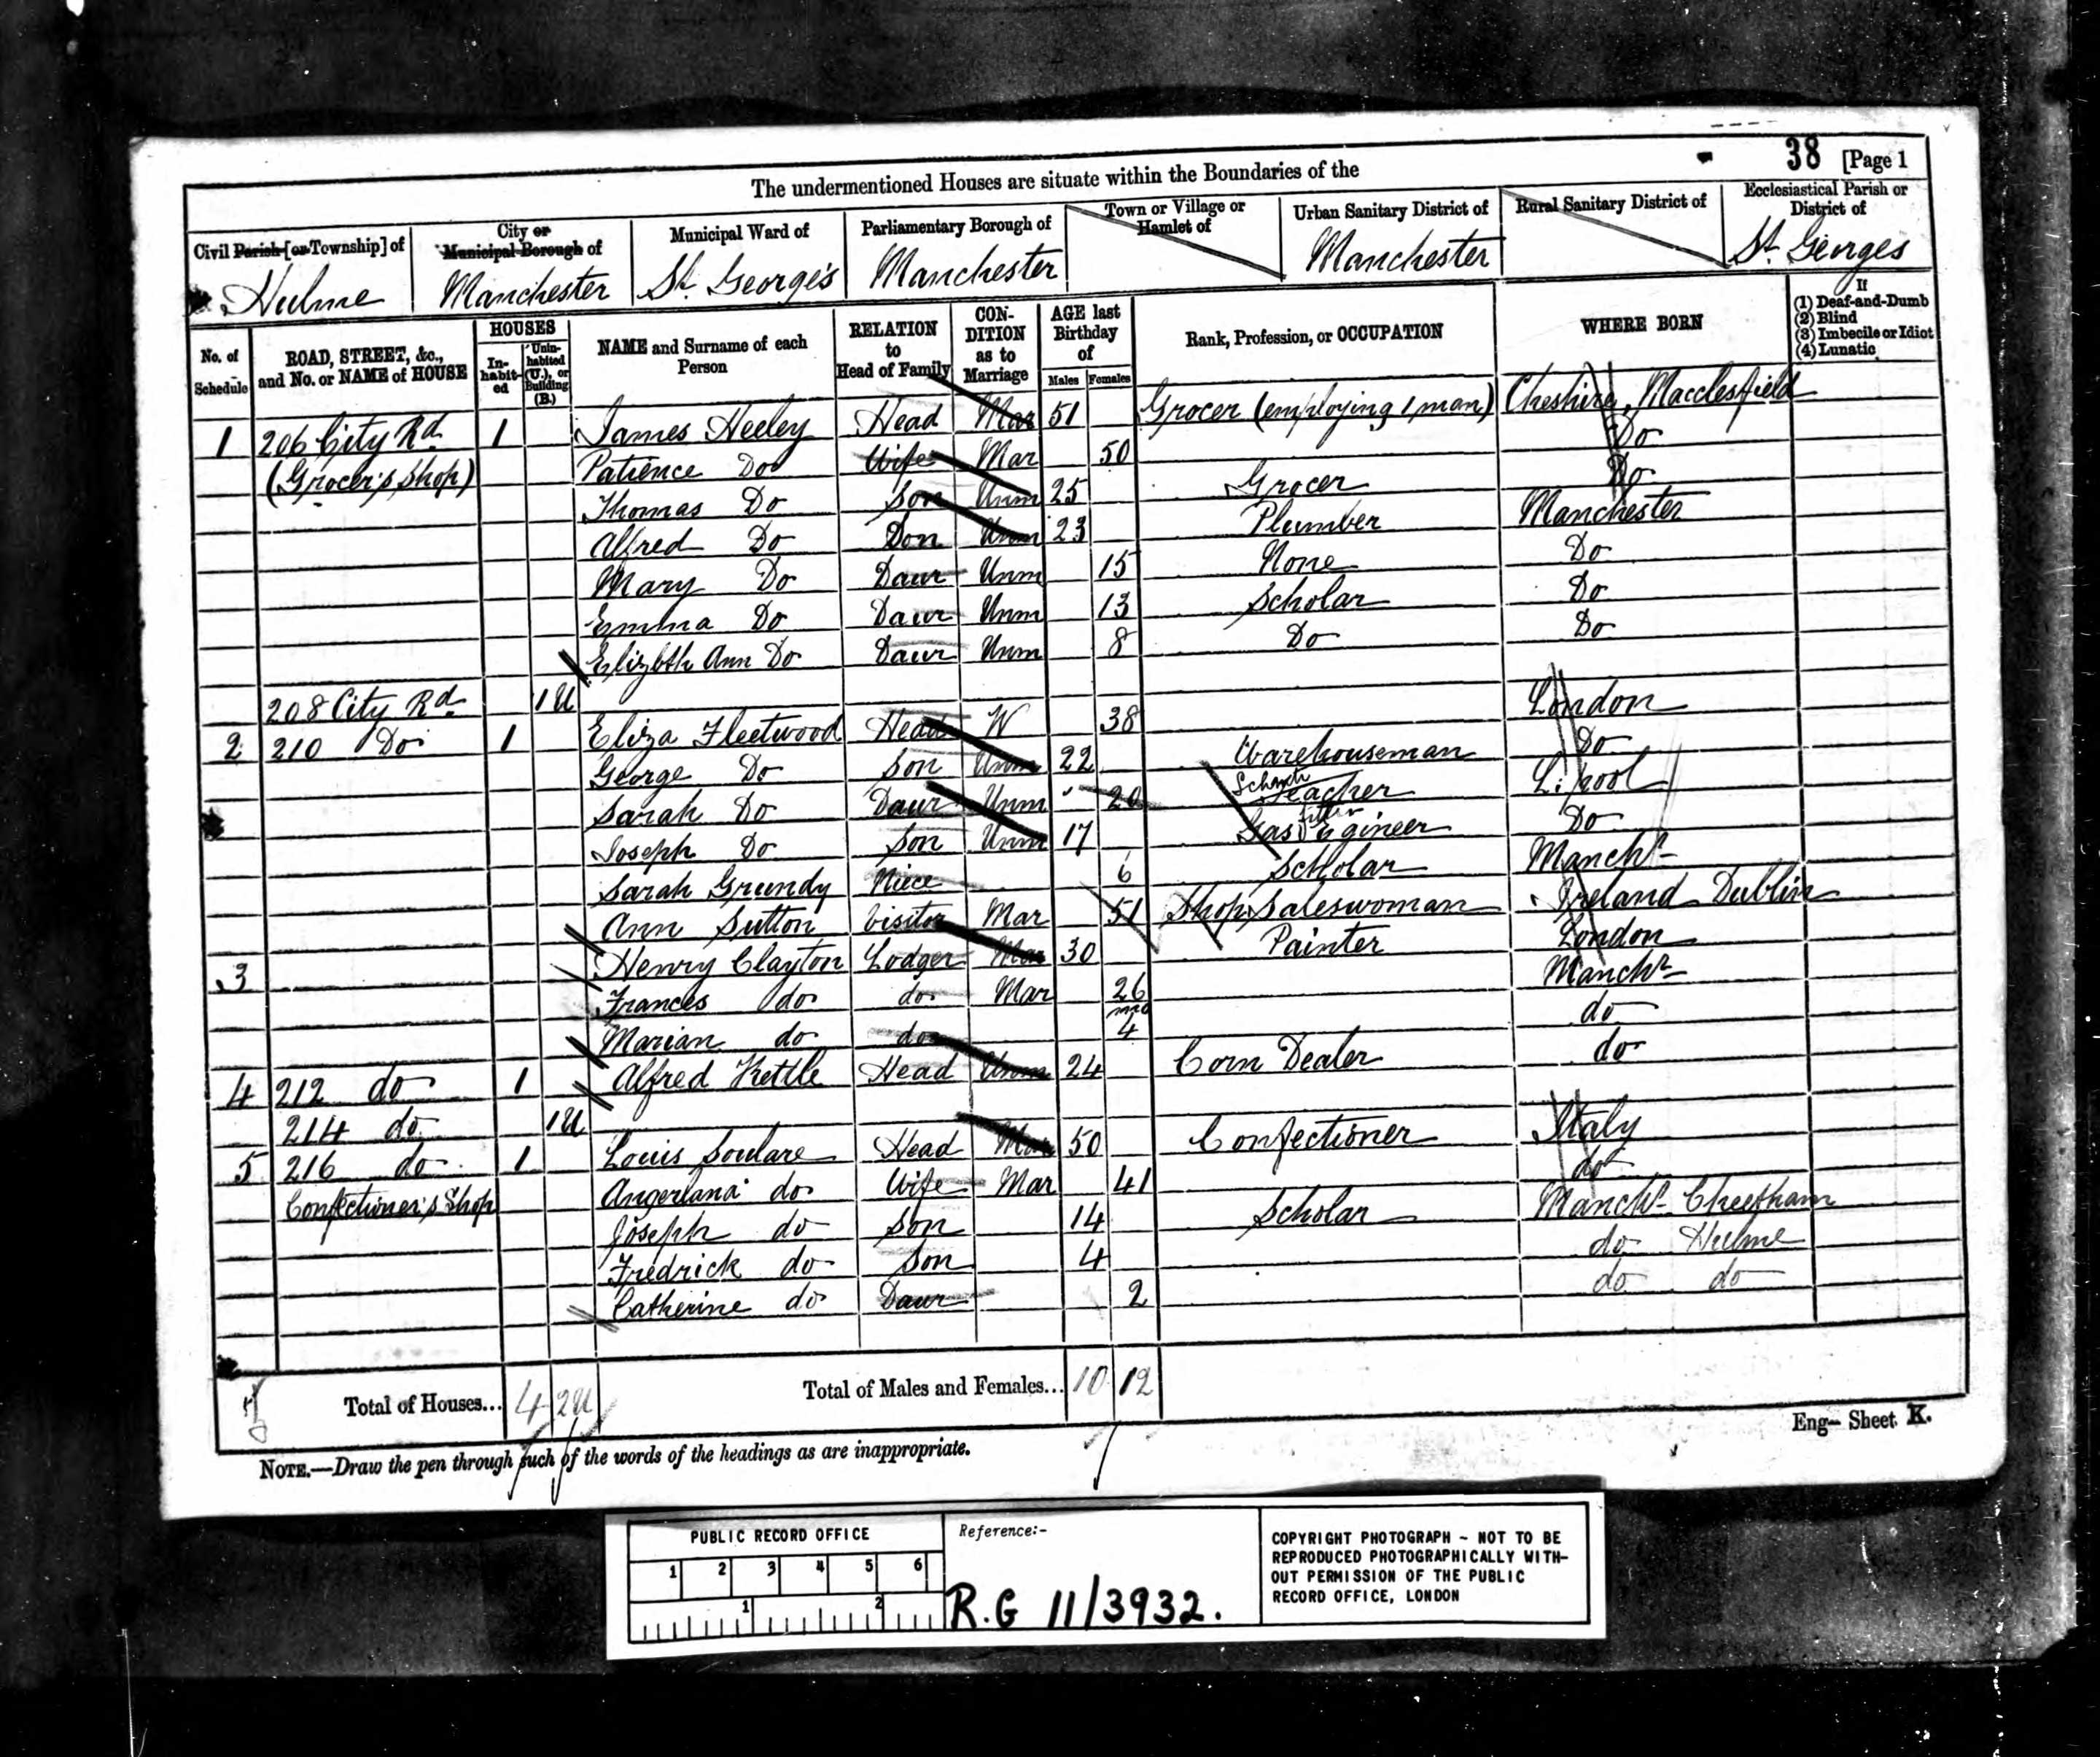 38 [Page 1
The undermentioned Houses are situate within the Boundaries of the
Civil Parish [or Township] of
City or Municipal Borough of
Municipal Ward of
Parliamentary Borough of
Town or Village or Hamlet of
Urban Sanitary District of
Rural Sanitary District of
Ecclesiastical Parish or District of
Hulme Manchester St. George's Manchester Manchester St. Georges
No. of Schedule
ROAD, STREET, &c., and No. or NAME of HOUSE
HOUSES
In-habit-ed
Unin-habited (U.), or Building (B.)
NAME and Surname of each Person
RELATION to Head of Family
CON-DITION as to Marriage
AGE last Birthday of
Males Females
Rank, Profession, or OCCUPATION
WHERE BORN
If
(1) Deaf-and-Dumb
(2) Blind
(3) Imbecile or Idiot
(4) Lunatic
1 206 City Rd 1 James Heeley Head Mar 51 Grocer (employing 1 man) Cheshire, Macclesfield
(Grocer's Shop) Patience Do Wife Mar 50 Do
Thomas Do Son Unm 25 Grocer Do
Alfred Do Son Unm 23 Plumber Manchester
Mary Do Daur Unm 15 None Do
Emma Do Daur Unm 13 Scholar Do
Elizbth Ann Do Daur Unm 8 Do Do
208 City Rd 1U
2 210 Do 1 Eliza Fleetwood Head W 38 London
George Do Son Unm 22 Warehouseman Do
Sarah Do Daur Unm 20 Teacher L.pool
Joseph Do Son Unm 17 Gas Fitter Egineer Do
Sarah Grundy Niece 6 Scholar Manchr
Ann Sutton Visitor Mar 51 Shop Saleswoman Ireland Dublin
3 Henry Clayton Lodger Mar 30 Painter London
Frances do do Mar 26 Manchr
Marian do do mo 4 do
4 212 do 1 Alfred Kettle Head Unm 24 Corn Dealer do
214 do 1U
5 216 do 1 Louis Soulare Head Mar 50 Confectioner Italy
Confectioner's Shop Angerlana do Wife Mar 41 do
Joseph do Son 14 Scholar Manchr Cheetham
Fredrick do Son 4 do Hulme
Catherine do Daur 2 do do
Total of Houses... 4 2U Total of Males and Females... 10 12
Eng— Sheet K.
NOTE.—Draw the pen through such of the words of the headings as are inappropriate.
PUBLIC RECORD OFFICE
1 2 3 4 5 6
1 2
Reference:-
R.G 11/3932.
COPYRIGHT PHOTOGRAPH - NOT TO BE
REPRODUCED PHOTOGRAPHICALLY WITH-
OUT PERMISSION OF THE PUBLIC
RECORD OFFICE, LONDON